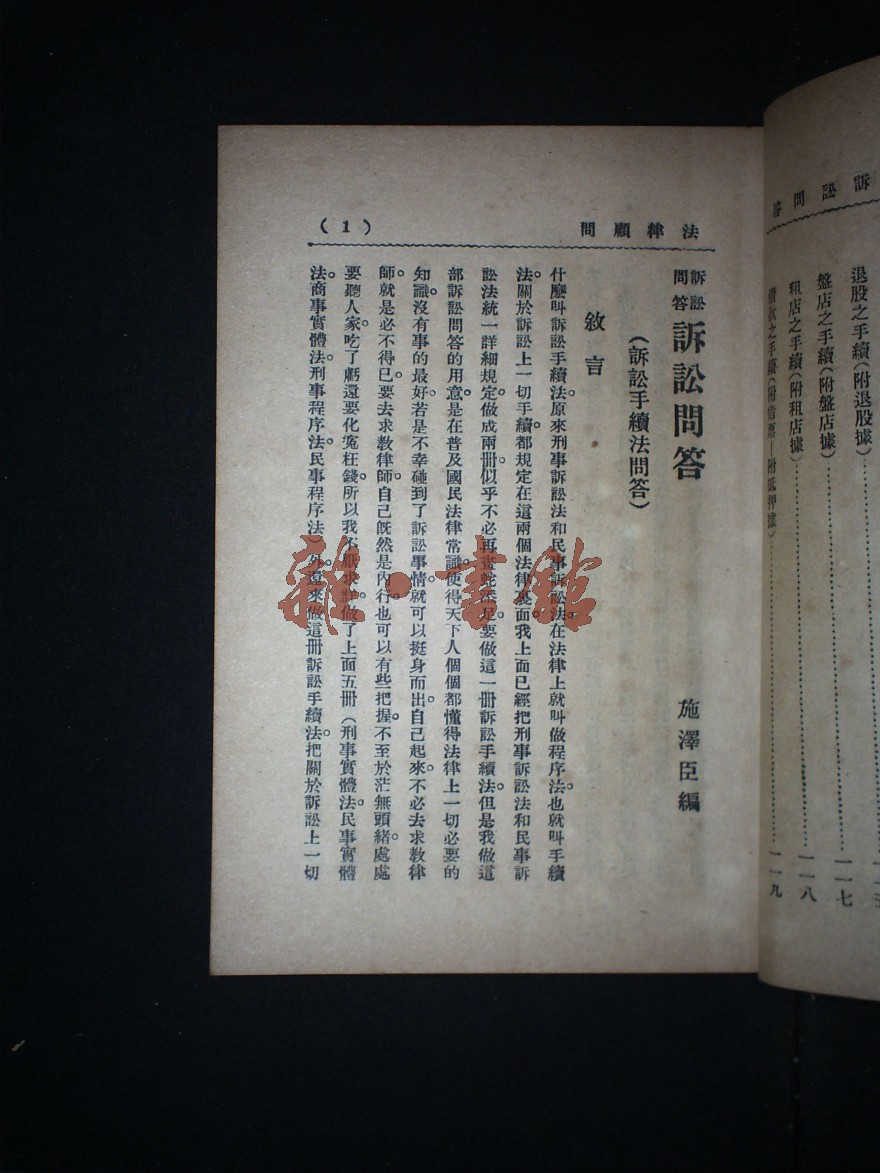 訴訟問答
退股之手續(附退股據)
盤店之手續(附盤店據)…一一七
租店之手續(附租店據)…一一八
借款之手續(附借票—附抵押據)…一一九
法律顧問
(1)
訴訟問答
訴訟問答
施澤臣編
(訴訟手續法問答)
敘言
什麼叫訴訟手續法。原來刑事訴訟法和民事訴訟法。在法律上就叫做程序法。也就叫手續
法。關於訴訟上一切手續。都規定在這兩個法律裏面。我上面已經把刑事訴訟法和民事訴
訟法統一詳細規定。做成兩冊。似乎不必再畫蛇添足。要做這一冊訴訟手續法。但是我做這
部訴訟問答的用意。是在普及國民法律常識。使得天下人個個都懂得法律上一切必要的
知識。沒有事的最好。若是不幸碰到了訴訟事情。就可以挺身而出。自己起來。不必去求教律
師。就是必不得已。要去求教律師。自己既然是內行。也可以有些把握。不至於茫無頭緒。處處
要聽人家。吃了虧還要化冤枉錢。所以我不厭求詳。做了上面五冊(刑事實體法。民事實體
法。商事實體法。刑事程序法。民事程序法)外。還來做這冊訴訟手續法。把關於訴訟上一切
雜·書館